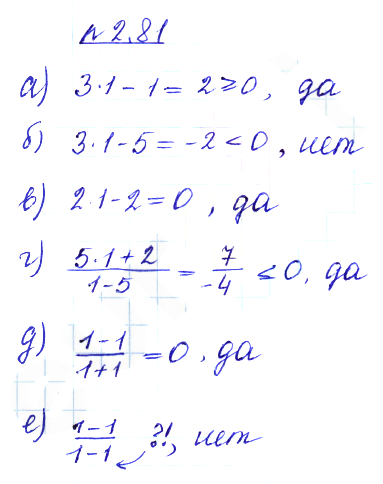 № 2.81
а) 3·1 - 1 = 2 ≥ 0, да
б) 3·1 - 5 = -2 < 0, нет
в) 2·1 - 2 = 0, да
г) (5·1 + 2)/(1 - 5) = 7/-4 ≤ 0, да
д) (1 - 1)/(1 + 1) = 0, да
е) (1 - 1)/(1 - 1) ?!, нет